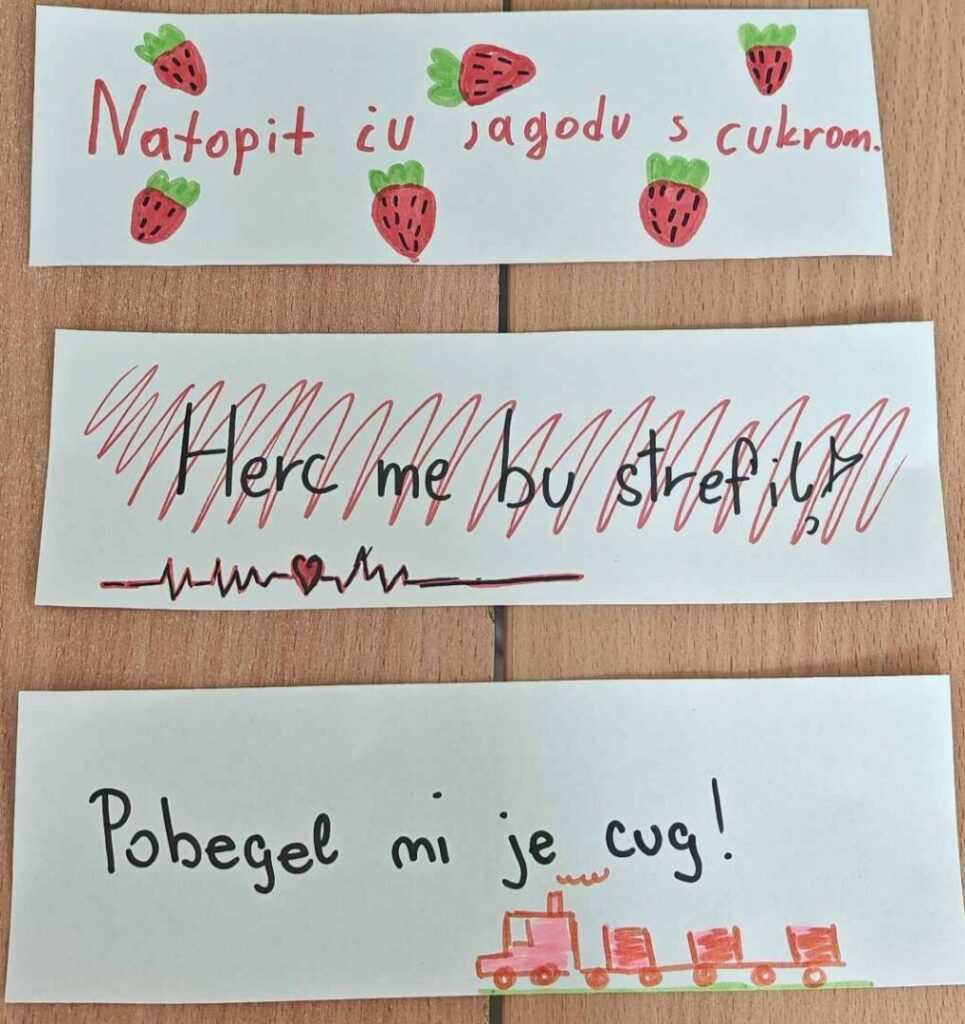 Natopit ću jagodu s cukrom.
Herc me bu strefil!
Pobegel mi je cug!